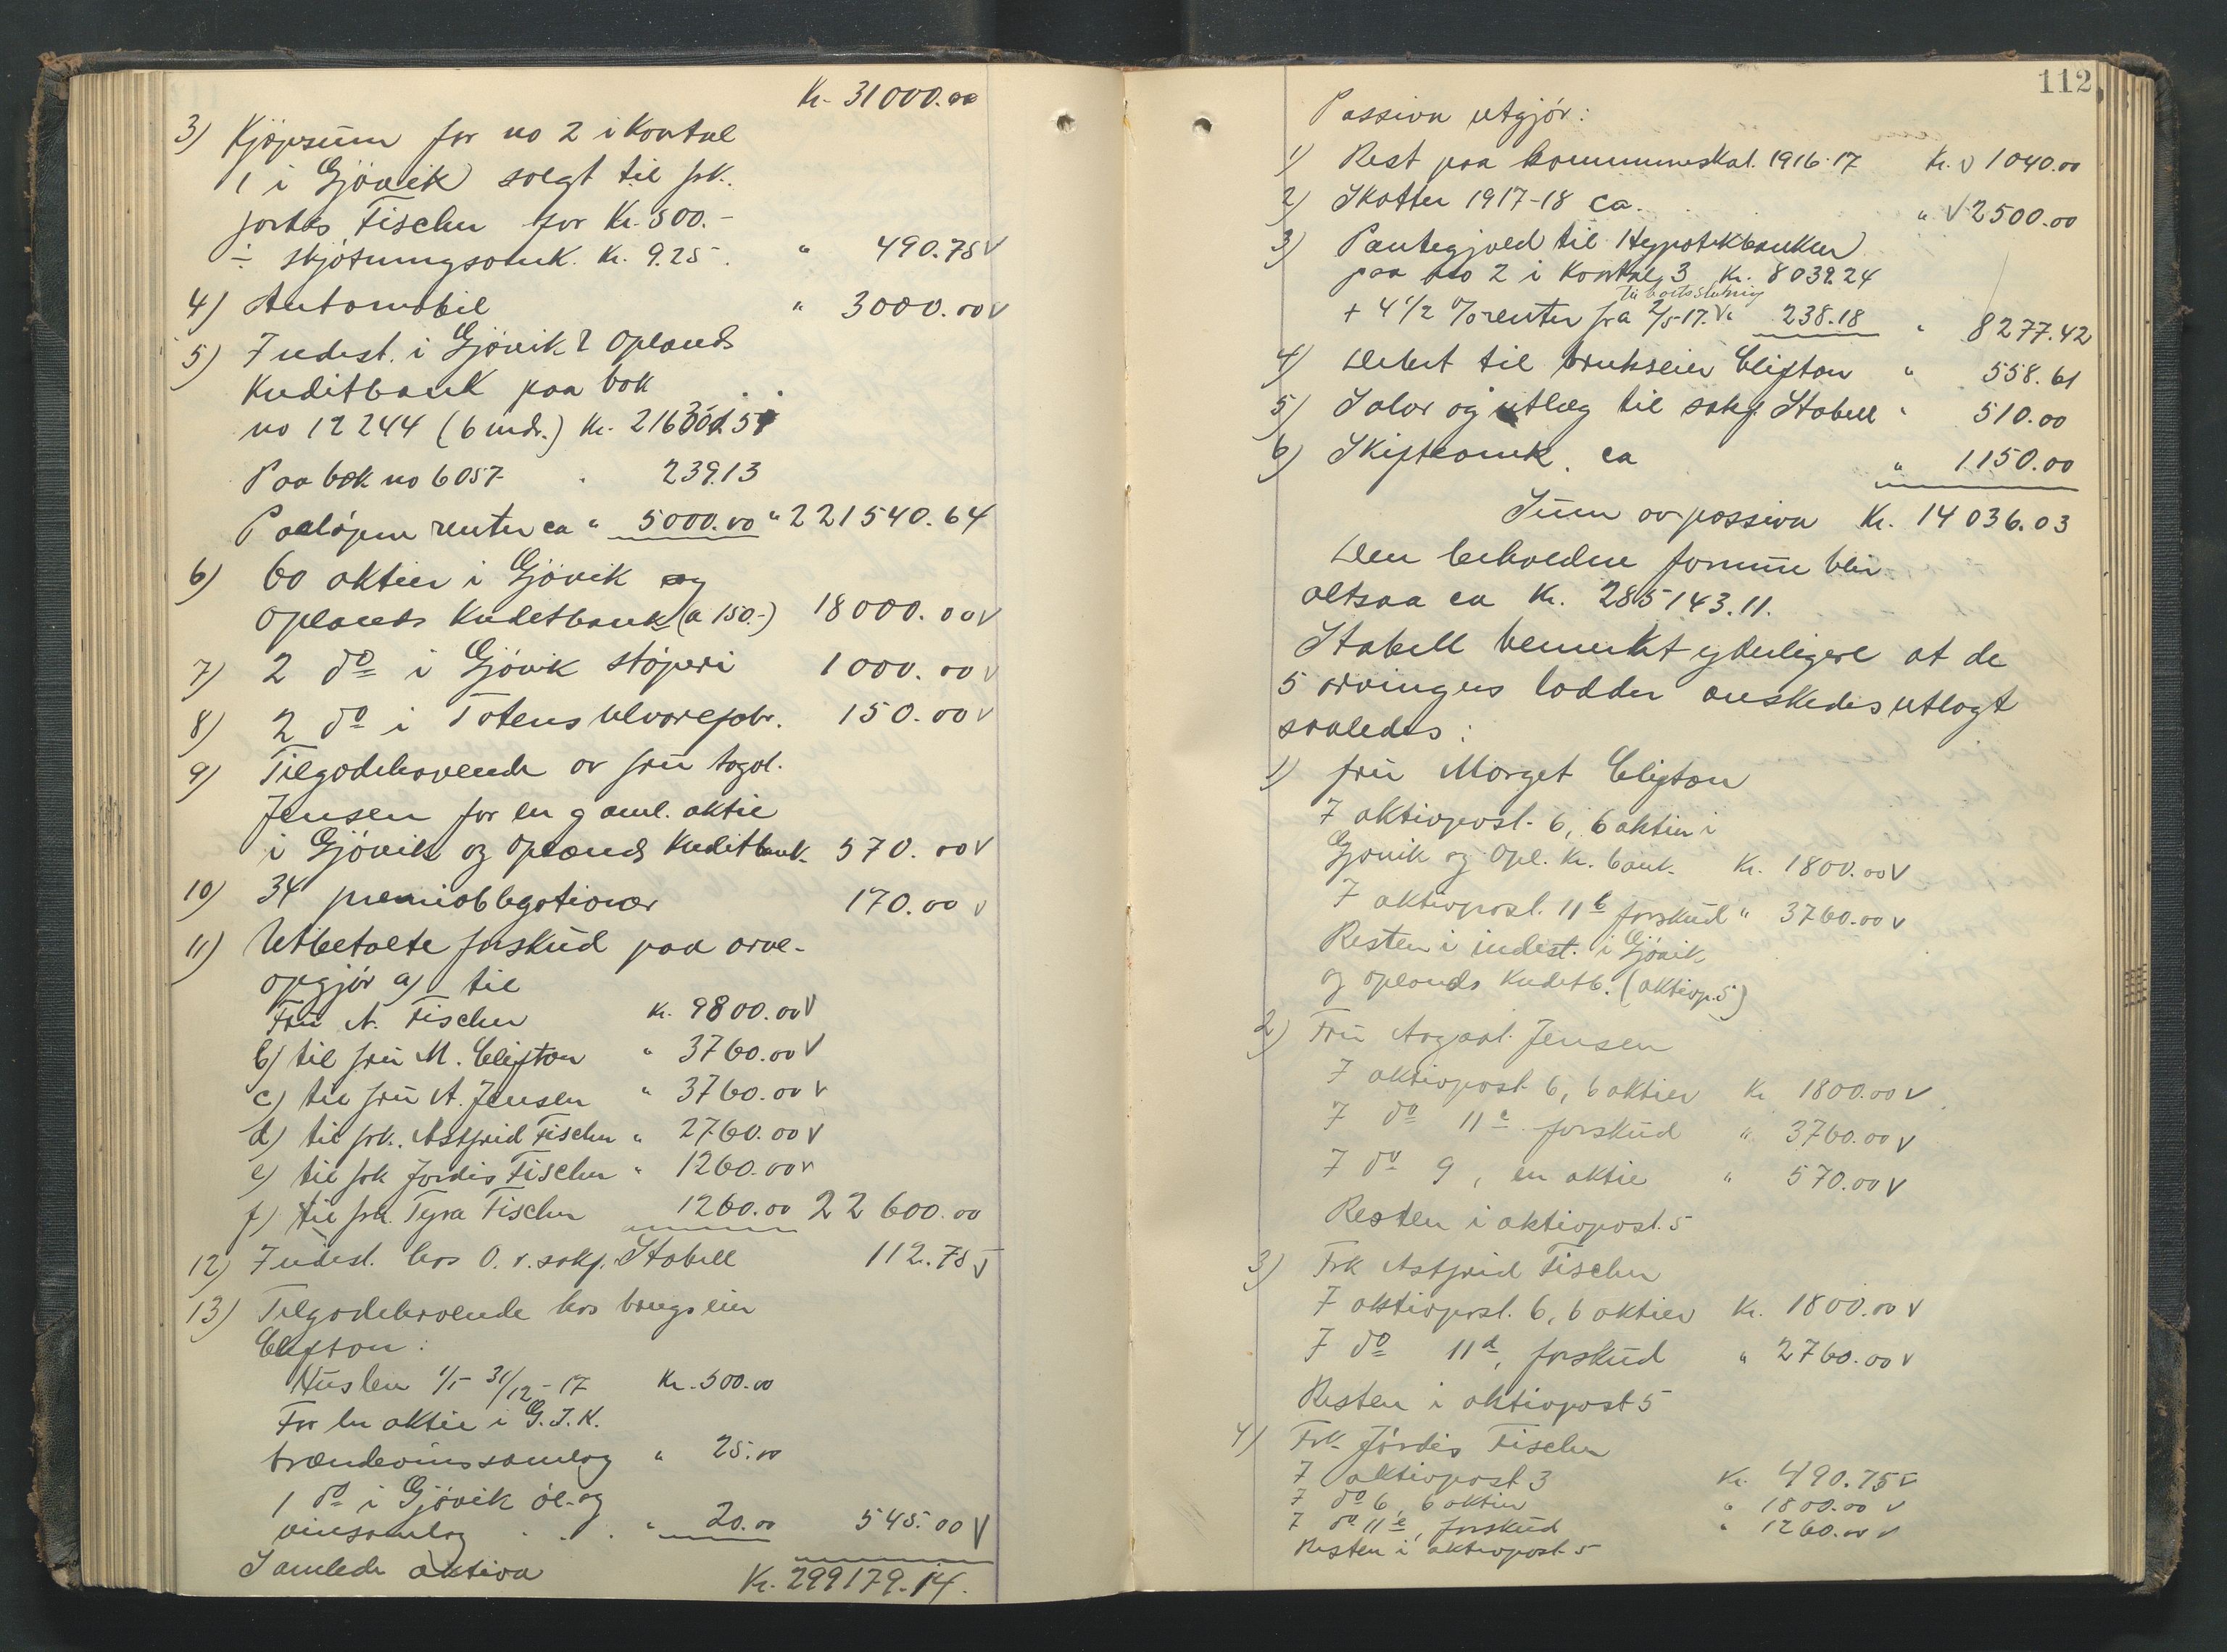 Kr. 31000.00
3) Kjøpsum for no 2 i Kvartal
1 i Gjøvik solgt til frk.
Jordis Fischer for Kr. 500.-
÷ skjøtningsomk. Kr. 9.25. " 490.75 V
4) Automobil " 3000.00 V
5) Indest. i Gjøvik & Oplands
Kreditbank paa bok
no 12244 (6 mdr.) Kr. 216301.51
Paa bok no 6057 . 239.13
Paaløpne renter ca " 5000.00 " 221540.64
6) 60 aktier i Gjøvik og
Oplands Kreditbank (a 150.-) 18000.00 V
7) 2 do i Gjøvik støperi 1000.00 V
8) 2 do i Totens ulvarefabr. 150.00 V
9) Tilgodehavende av fru Aagot.
Jensen for en gaml. aktie
i Gjøvik og Oplands Kreditbank 570.00 V
10) 34 premieobligationer 170.00 V
11) Utbetalte forskud paa arve-
opgjør a) til
Fru A. Fischer Kr. 9800.00 V
b) til fru M. Clifton " 3760.00 V
c) til fru A. Jensen " 3760.00 V
d) til frk. Astfrid Fischer " 2760.00 V
e) til frk Jordis Fischer " 1260.00 V
f) til frk. Tyra Fischer 1260.00 22600.00
12) Indest. hos O.r.sakf. Stabell 112.75 V
13) Tilgodehavende hos brugseier
Clifton:
Husleie 1/5 - 31/12-17 Kr. 500.00
For en aktie i G.I.K.
brændevinssamlag " 25.00
1 do i Gjøvik øl- og
vinsamlag . . . " 20.00 545.00 V
Samlede aktiva Kr. 299179.14.
112
Passiva utgjør:
1) Rest paa kommuneskat. 1916-17 Kr. V 1040.00
2) Skatter 1917-18 ca. " V 2500.00
3) Pantegjæld til Hypotekbanken
paa no 2 i Kvartal 3 Kr. 8039.24
til bortslutning
+ 4 1/2 % renter fra 2/5-17. 238.18 " 8277.42
4) Debet til brukseier Clifton " 558.61
5) Salær og utlæg til sakf. Stabell " 510.00
6) Skifteomk. ca " 1150.00
Sum av passiva Kr. 14036.03
Den beholdne formue blir
altsaa ca Kr. 285143.11.
Stabell bemerket yderligere at de
5 arvingers lodder ønskedes utlagt
saaledes:
1) fru Marget Clifton
I aktivpost 6, 6 aktier i
Gjøvik og Opl. Kr. bank. Kr. 1800.00 V
I aktivpost. 11 b forskud " 3760.00 V
Resten i indest. i Gjøvik
og Oplands Kreditb. (aktivp. 5)
2) Fru Aagot. Jensen
I aktivpost 6, 6 aktier Kr 1800.00 V
I do 11 c forskud " 3760.00 V
I do 9, en aktie " 570.00 V
Resten i aktivpost. 5
3) Frk Astfrid Fischer
I aktivpost. 6, 6 aktier Kr. 1800.00 V
I do 11 d, forskud " 2760.00 V
Resten i aktivpost 5
4) Frk Jordis Fischer
I aktivpost 3 Kr. 490.75 V
I do 6, 6 aktier " 1800.00 V
I do 11 e, forskud " 1260.00 V
Resten i aktivpost 5